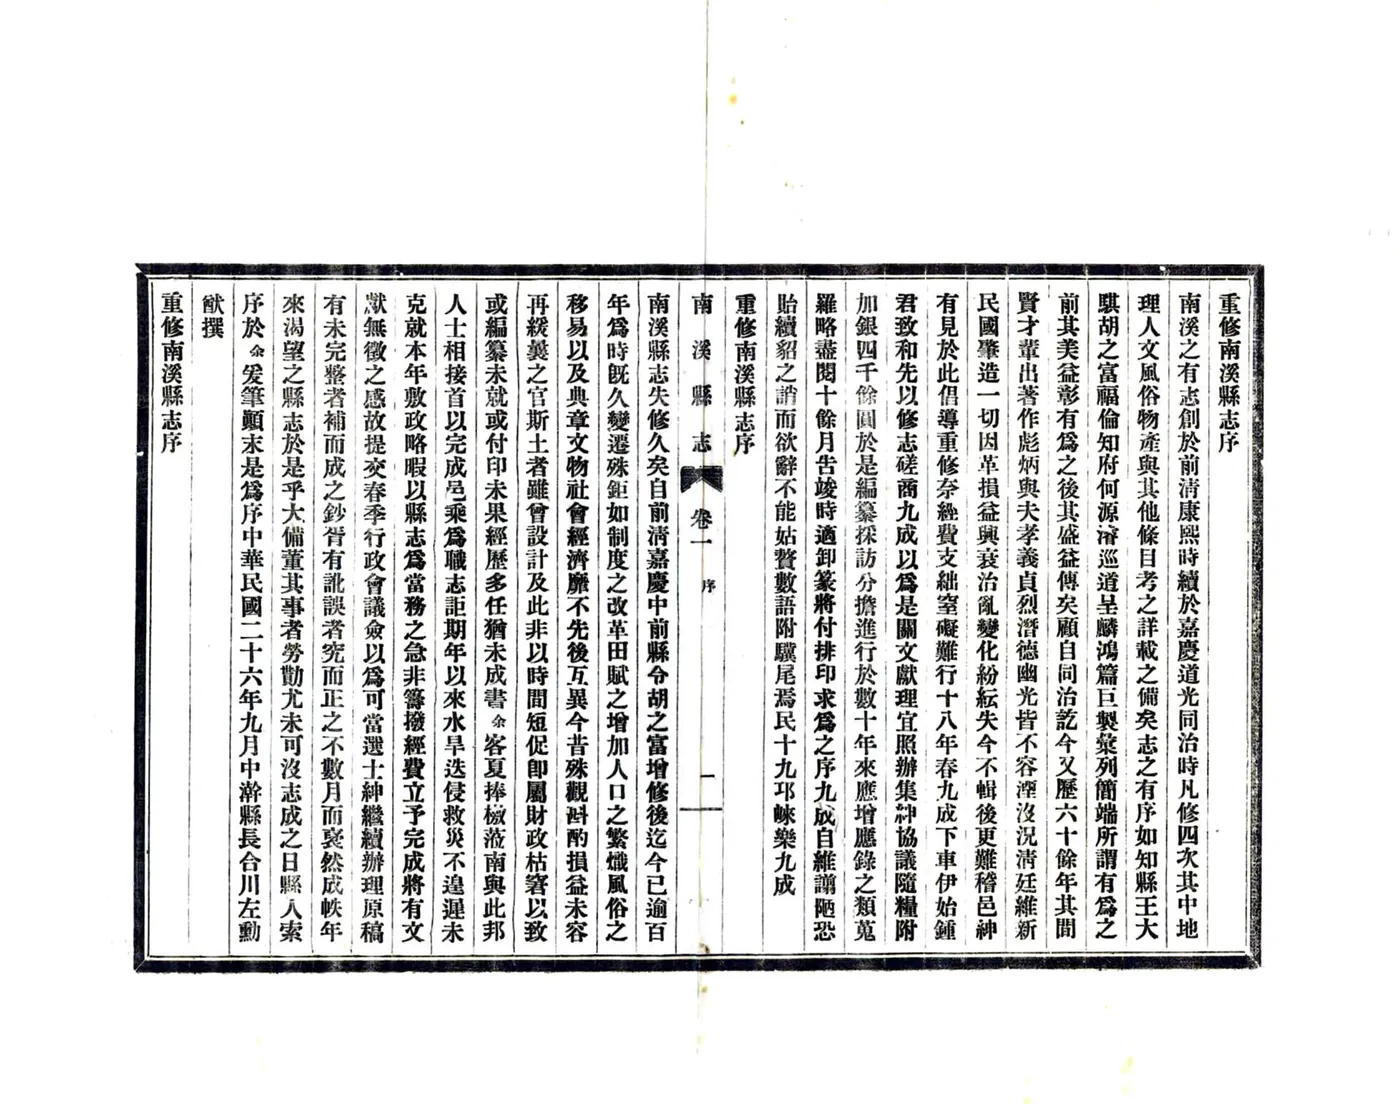 重修南溪縣志序
南溪之有志創於前清康熙時續於嘉慶道光同治時凡修四次其中地
理人文風俗物產與其他條目考之詳載之備矣志之有序如知縣王大
騏胡之富福倫知府何源濬巡道呈麟鴻篇巨製彙列簡端所謂有爲之
前其美益彰有爲之後其盛益傳矣顧自同治訖今又歷六十餘年其間
賢才輩出著作彪炳與夫孝義貞烈潛德幽光皆不容湮沒況淸廷維新
民國肇造一切因革損益興衰治亂變化紛紜失今不輯後更難稽邑紳
有見於此倡導重修奈經費支絀窒礙難行十八年春九成下車伊始鍾
君致和先以修志磋商九成以爲是關文獻理宜照辦集紳協議隨糧附
加銀四千餘圓於是編纂採訪分擔進行於數十年來應增應錄之類蒐
羅略盡閱十餘月告竣時適卸篆將付排印求爲之序九成自維譾陋恐
貽續貂之誚而欲辭不能姑贅數語附驥尾焉民十九邛崍樂九成
重修南溪縣志序
南溪縣志 卷一 序 一
南溪縣志失修久矣自前淸嘉慶中前縣令胡之富增修後迄今已逾百
年爲時旣久變遷殊鉅如制度之改革田賦之增加人口之繁熾風俗之
移易以及典章文物社會經濟靡不先後互異今昔殊觀斟酌損益未容
再緩曩之官斯土者雖曾設計及此非以時間短促卽屬財政枯窘以致
或編纂未就或付印未果經歷多任猶未成書余客夏捧檄蒞南與此邦
人士相接首以完成邑乘爲職志詎期年以來水旱迭侵救災不遑遲未
克就本年敷政略暇以縣志爲當務之急非籌撥經費立予完成將有文
獻無徵之感故提交春季行政會議僉以爲可當選士紳繼續辦理原稿
有未完整者補而成之鈔胥有訛誤者究而正之不數月而裒然成帙年
來渴望之縣志於是乎大備董其事者勞勩尤未可沒志成之日縣人索
序於余爰筆顚末是爲序中華民國二十六年九月中澣縣長合川左勳
猷撰
重修南溪縣志序